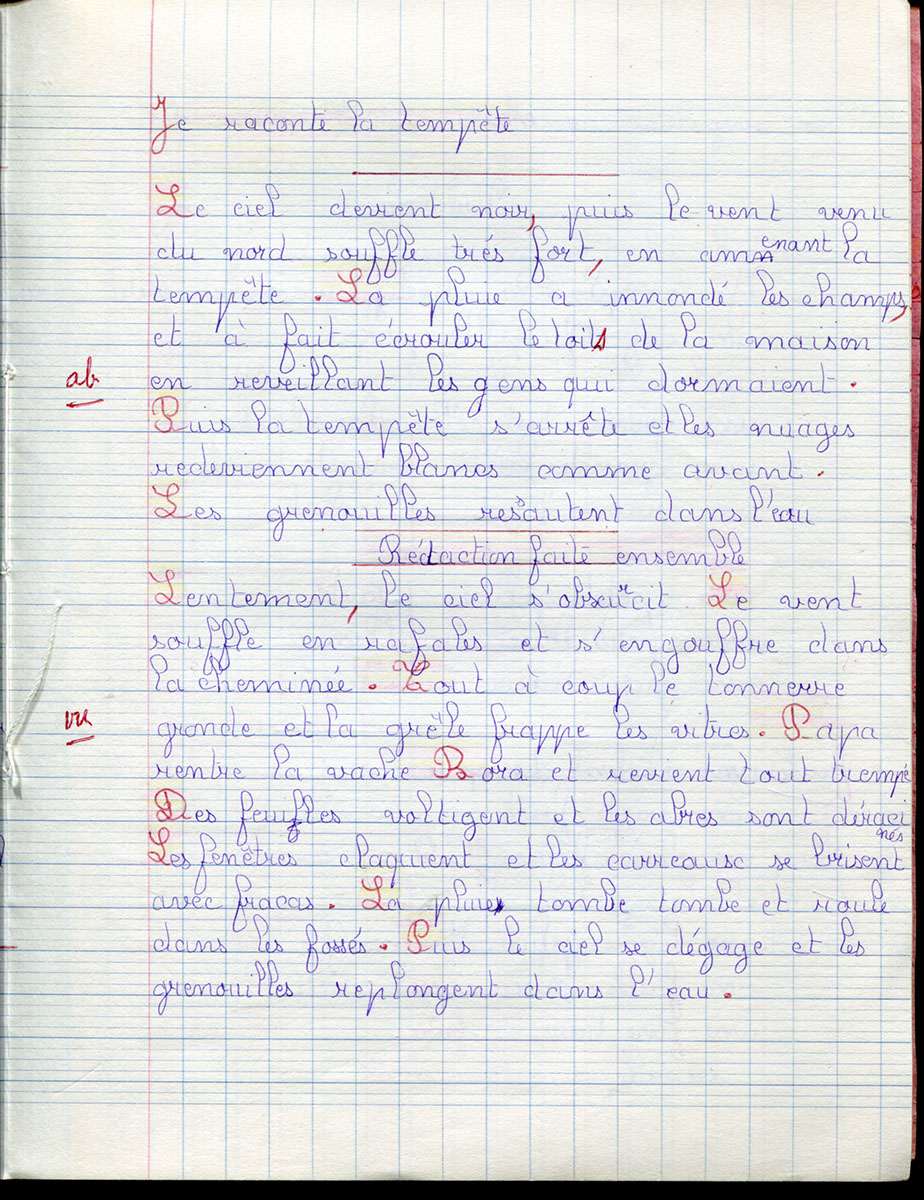 Je raconte la tempête
Le ciel devient noir, puis le vent venu
du nord souffle trés fort, en amnenant la
tempête. La pluie a innondé les champs,
et à fait écrouler le toit de la maison
ab
en reveillant les gens qui dormaient.
Puis la tempête s'arrête et les nuages
redeviennent blancs comme avant.
Les grenouilles resautent dans l'eau
Rédaction faite ensemble
Lentement, le ciel s'obscurcit. Le vent
souffle en rafales et s'engouffre dans
la cheminée. Tout à coup le tonnerre
vu
gronde et la grêle frappe les vitres. Papa
rentre la vache Bora et revient tout trempé
Des feuilles voltigent et les abres sont déraci
nés
Les fenêtres claquent et les carreaux se brisent
avec fracas. La pluie tombe tombe et roule
dans les fossés. Puis le ciel se dégage et les
grenouilles replongent dans l'eau.